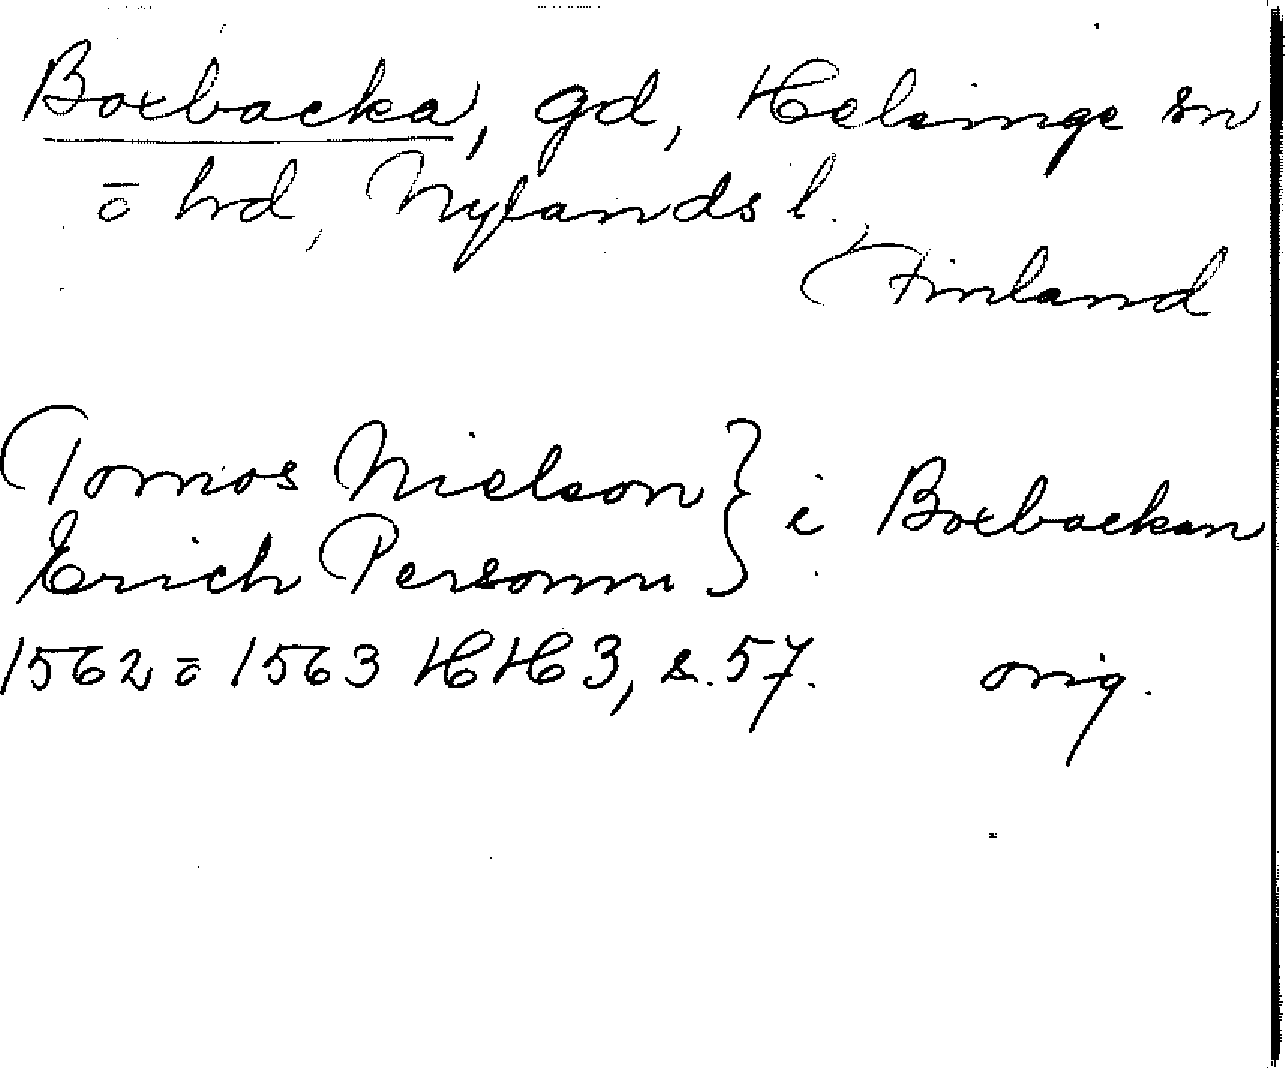 Boxbacka, gd, Helsinge sn
o hrd, Nylands l.
Finland
Tomos Nielson } i Boxbackan
Erich Personnu
1562 o 1563 HH 3, s. 57. orig.